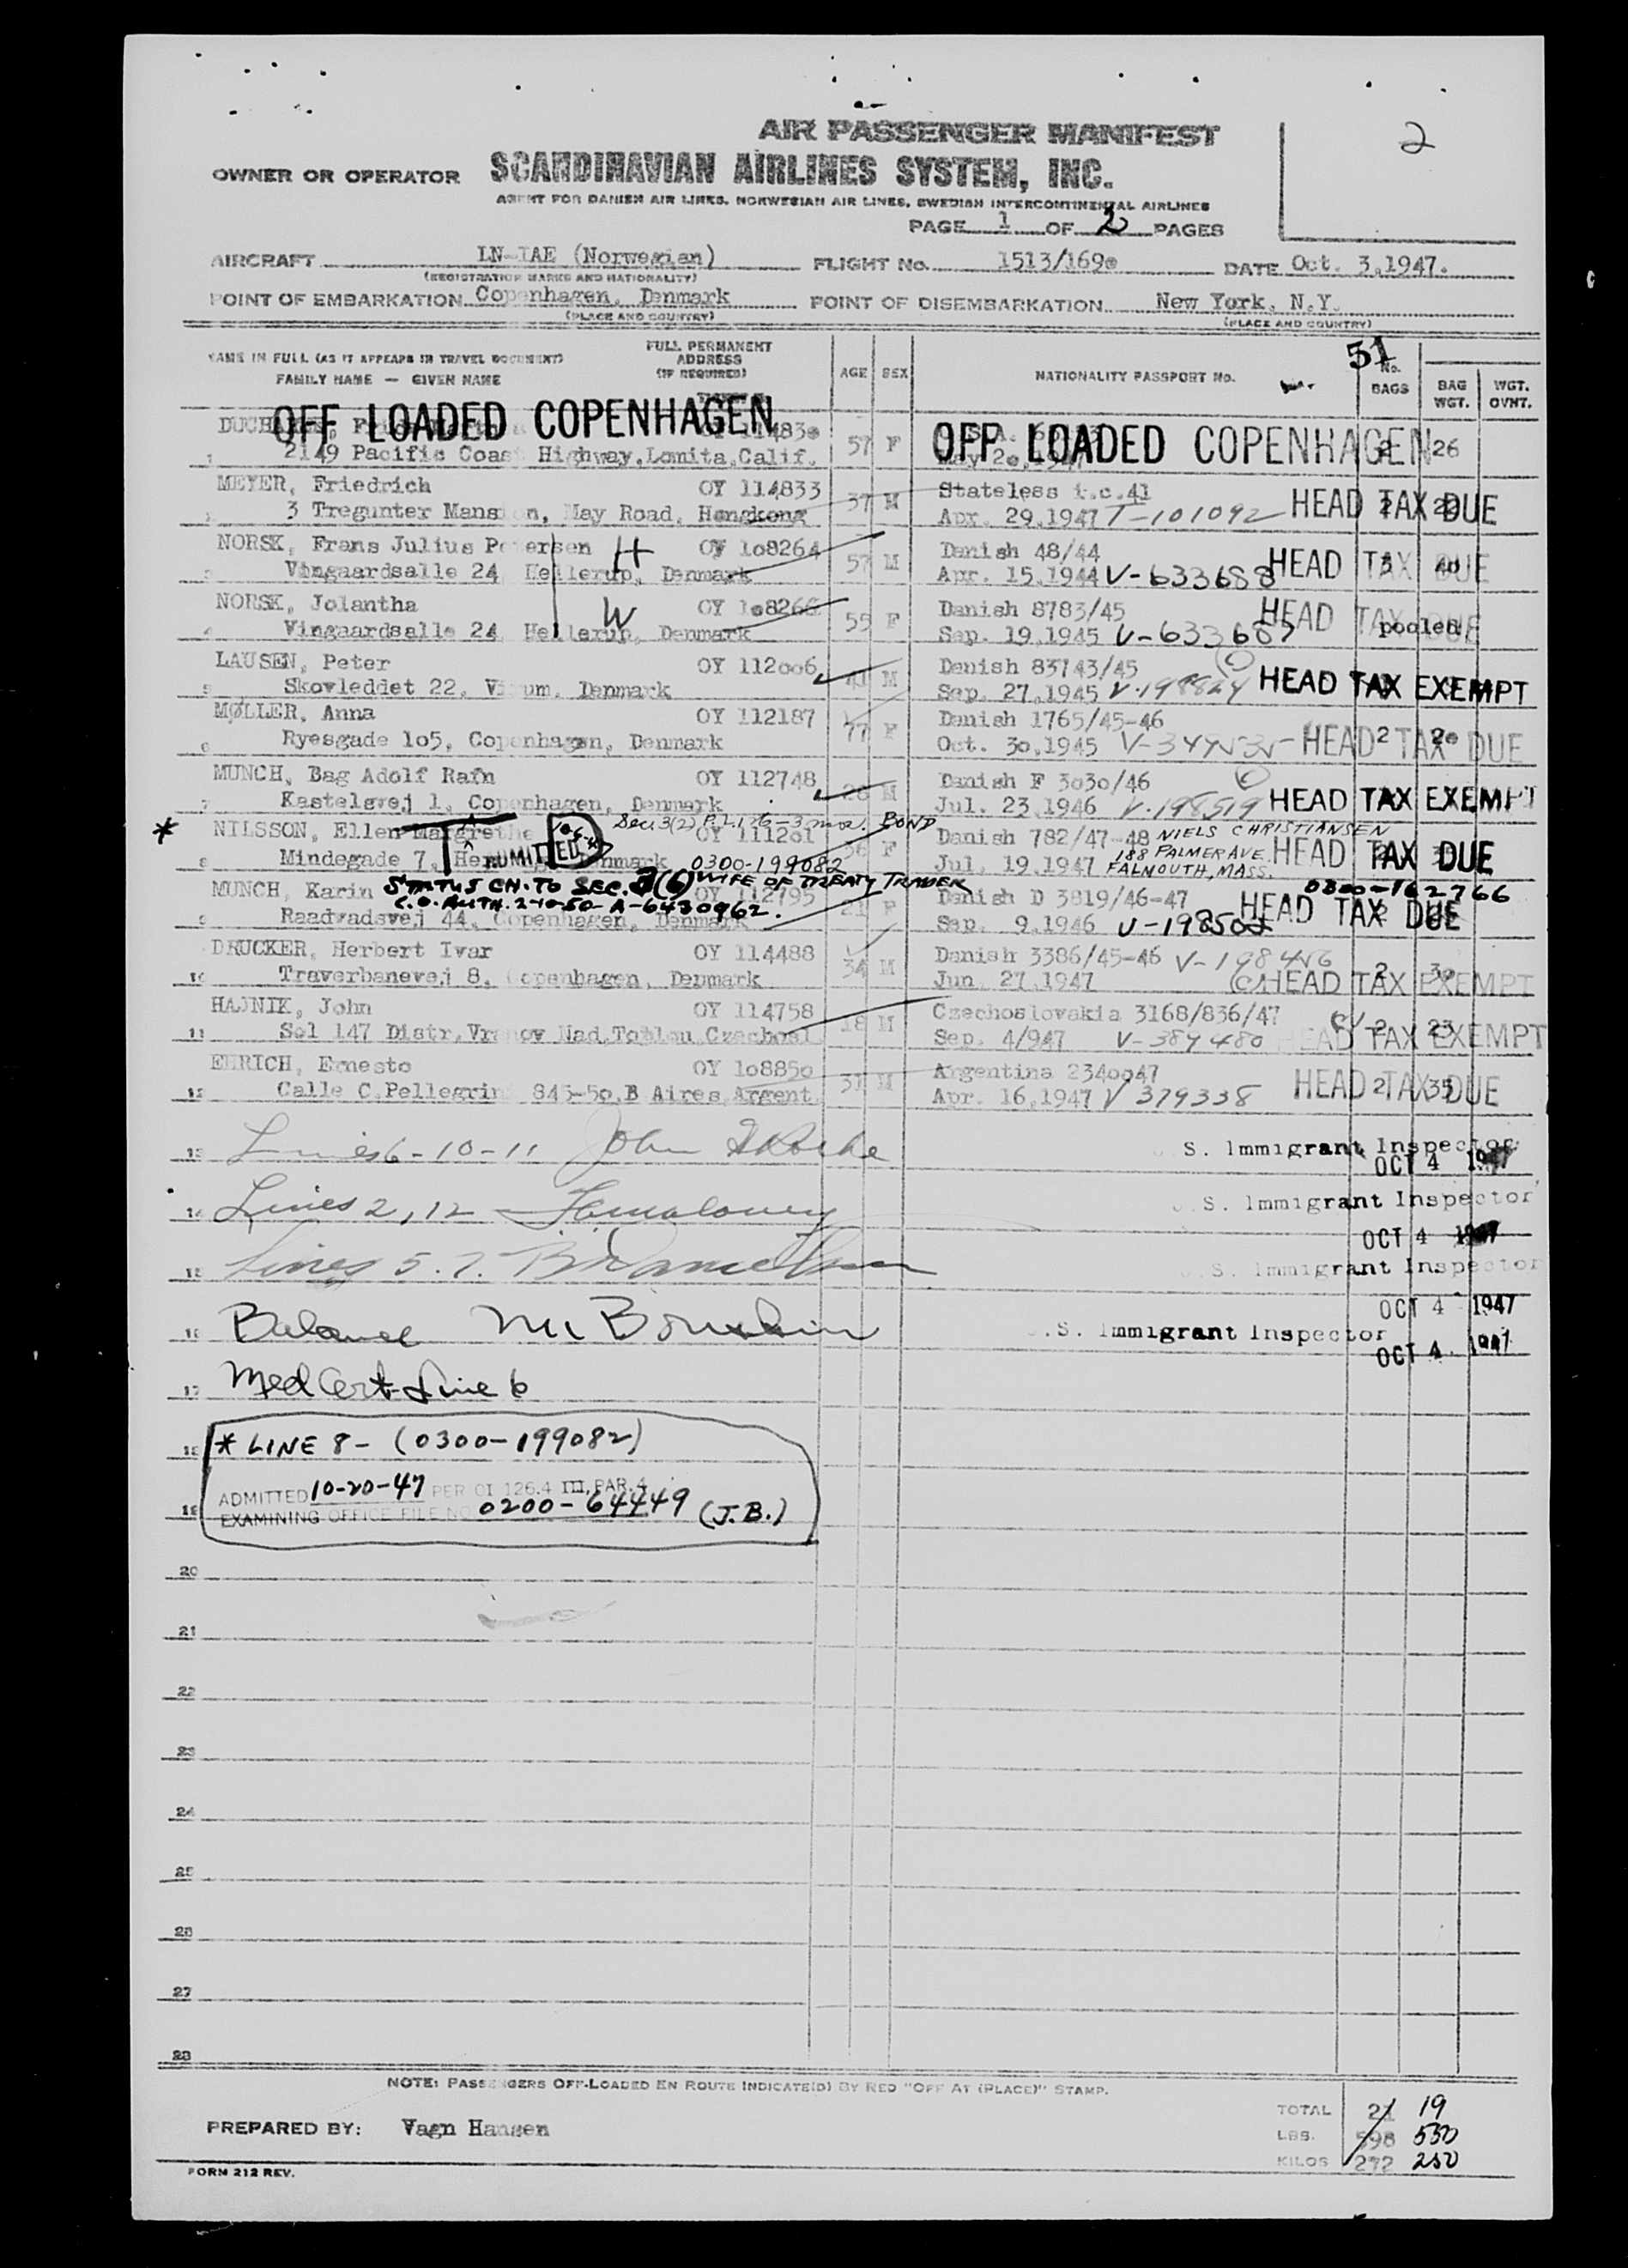 2
AIR PASSENGER MANIFEST
OWNER OR OPERATOR SCANDINAVIAN AIRLINES SYSTEM, INC.
AGENT FOR DANISH AIR LINES, NORWEGIAN AIR LINES, SWEDISH INTERCONTINENTAL AIRLINES
PAGE 1 OF 2 PAGES
AIRCRAFT LN-IAE (Norwegian) FLIGHT No. 1513/169o DATE Oct. 3.1947.
(REGISTRATION MARKS AND NATIONALITY)
POINT OF EMBARKATION Copenhagen, Denmark POINT OF DISEMBARKATION New York, N.Y.
(PLACE AND COUNTRY) (PLACE AND COUNTRY)
NAME IN FULL (AS IT APPEARS IN TRAVEL DOCUMENT) FAMILY NAME — GIVEN NAME
FULL PERMANENT ADDRESS (IF REQUIRED) AGE SEX NATIONALITY PASSPORT No. 51 No. BAGS BAG WGT. WGT. OVHT.
OFF LOADED COPENHAGEN OFF LOADED COPENHAGEN
1 2149 Pacific Coast Highway, Lomita, Calif. 57 F 2 26
MEYER, Friedrich OY 114833 37 M Stateless t.c.41 HEAD TAX DUE
2 3 Tregunter Mansion, May Road, Hongkong Apr. 29.1947 T-101092
NORSK, Frans Julius Petersen H OY 1o8264 57 M Danish 48/44 HEAD TAX DUE
3 Vingaardsalle 24 Hellerup, Denmark Apr. 15.1944 V-633688 3 4o
NORSK, Jolantha W OY 1o8266 55 F Danish 8783/45 HEAD TAX DUE
4 Vingaardsalle 24 Hellerup, Denmark Sep. 19.1945 V-633687 pooled
LAUSEN, Peter OY 112oo6 41 M Danish 83743/45
5 Skovleddet 22, Virum, Denmark Sep. 27.1945 V-198824 HEAD TAX EXEMPT
MØLLER, Anna OY 112187 77 F Danish 1765/45-46
6 Ryesgade 1o5, Copenhagen, Denmark Oct. 3o.1945 HEAD TAX DUE 2 2o
MUNCH, Bag Adolf Rafn OY 112748 28 M Danish F 3o3o/46
7 Kastelsvej 1, Copenhagen, Denmark Jul. 23.1946 V-198519 HEAD TAX EXEMPT
* NILSSON, Ellen Margrethe OY 1112o1 Sec. 3(2) P.L. BOND 36 F Danish 782/47-48 NIELS CHRISTIANSEN
8 Mindegade 7, ADMITTED Denmark 0300-199082 Jul. 19.1947 188 PALMER AVE. FALMOUTH, MASS. HEAD TAX DUE
STATUS CH. TO SEC. 3(6) WIFE OF TREATY TRADER 0300-162766
C.O. AUTH. 2-10-50- A-6430962.
MUNCH, Karin OY 112795 21 F Danish D 3819/46-47 HEAD TAX DUE
9 Raadvadsvej 44, Copenhagen, Denmark Sep. 9.1946 V-198502
DRUCKER, Herbert Ivar OY 114488 34 M Danish 3386/45-46 V-198456
10 Traverbanevej 8, Copenhagen, Denmark Jun. 27.1947 HEAD TAX EXEMPT 2 3o
HAJNIK, John OY 114758 18 M Czechoslovakia 3168/836/47 2 23
11 Sol 147 Distr, Vranov Nad, Czechosl Sep. 4/947 V-389480 HEAD TAX EXEMPT
EHRICH, Ernesto OY 1o885o 31 M Argentina 234oo47 HEAD TAX DUE
12 Calle C.Pellegrini 845-5o, B Aires, Argent. Apr. 16.1947 V 379338 2 35
13 Lines 6-10-11 John S. Immigrant Inspector OCT 4 1947
14 Lines 2, 12 S. Immigrant Inspector OCT 4 1947
15 Lines 5.7. S. Immigrant Inspector OCT 4 1947
16 Balance .S. Immigrant Inspector OCT 4 1947
17 Med Cert- Line 6
18 * LINE 8 - (0300-199082)
ADMITTED 10-20-47 PER OI 126.4 III, PAR. 4
19 EXAMINING OFFICE FILE NO 0200-64449 (J.B.)
20
21
22
23
24
25
26
27
28
NOTE: PASSENGERS OFF-LOADED EN ROUTE INDICATE(D) BY RED "OFF AT (PLACE)" STAMP.
TOTAL 21 19
PREPARED BY: Vagn Hansen LBS. 598 550
KILOS 272 250
FORM 212 REV.